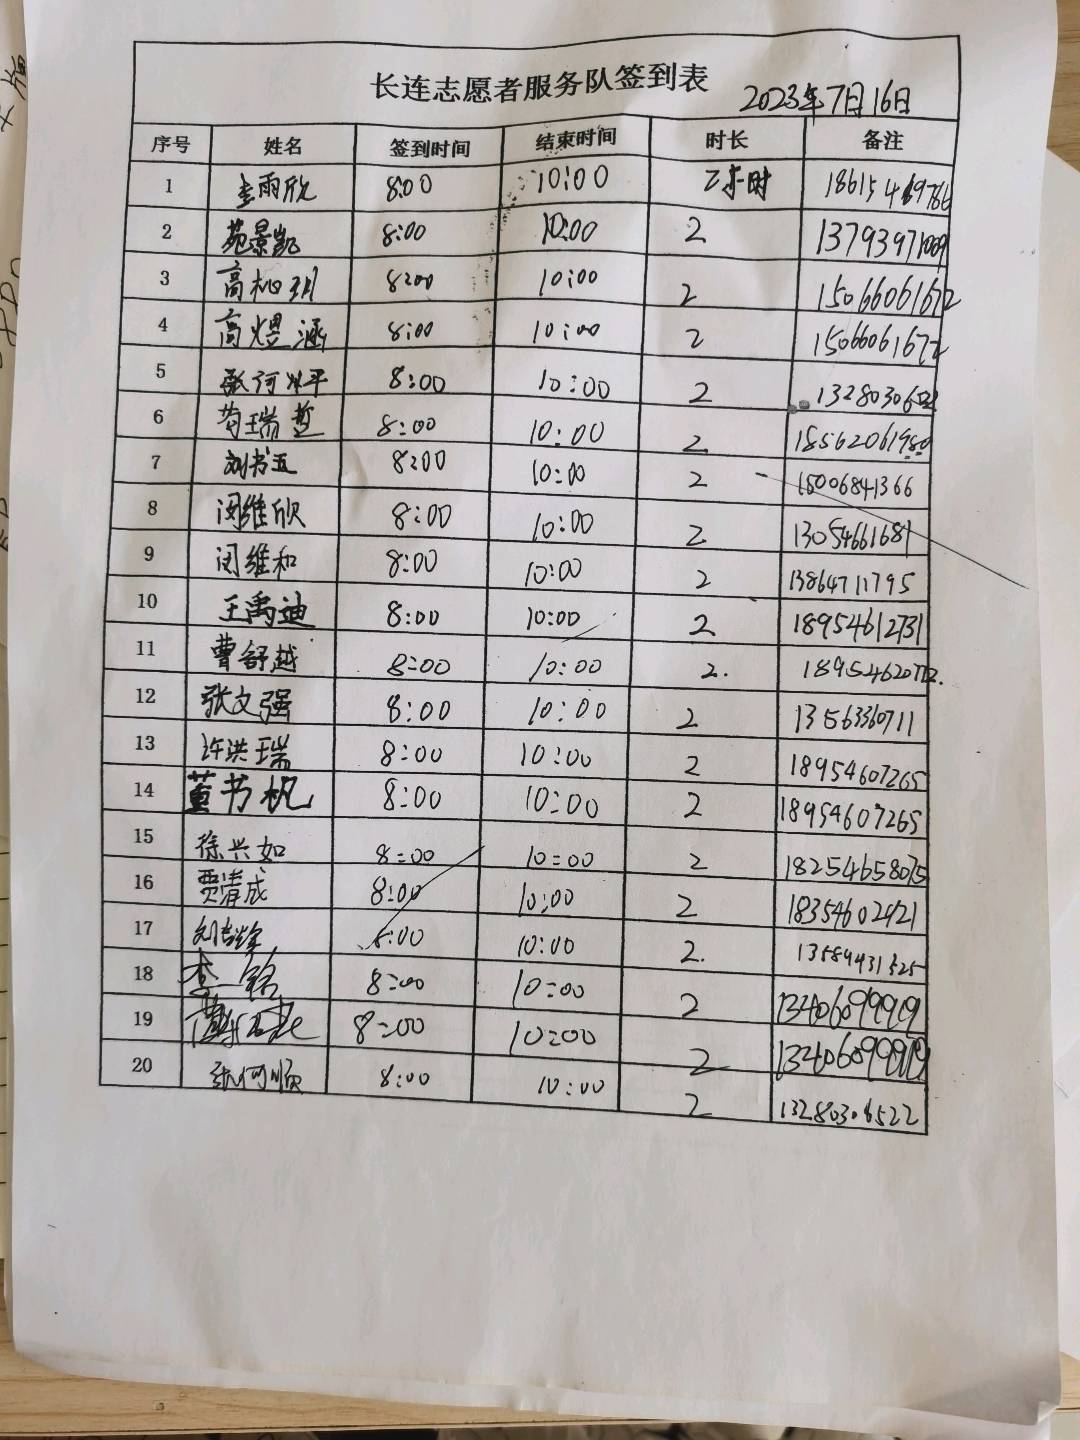 长连志愿者服务队签到表 2023年7月16日
序号 姓名 签到时间 结束时间 时长 备注
1 雨欣 8:00 10:00 2小时
2 苑景凯 8:00 10:00 2 13793971009
3 高 8:00 10:00 2 15066061672
4 高煜涵 8:00 10:00 2 15066061672
5 张何平 8:00 10:00 2
6 苟瑞哲 8:00 10:00 2 18562061980
7 刘书五 8:00 10:00 2 15006841366
8 闵维欣 8:00 10:00 2 13054661681
9 闵维和 8:00 10:00 2 13864711795
10 王禹迪 8:00 10:00 2 18954612731
11 曹舒越 8:00 10:00 2.
12 张文强 8:00 10:00 2 13563360711
13 许洪瑞 8:00 10:00 2 18954607265
14 董书帆 8:00 10:00 2 18954607265
15 徐兴如 8:00 10:00 2 18254658075
16 贾清成 8:00 10:00 2 18354602421
17 8:00 10:00 2. 13589431525
18 李一铭 8:00 10:00 2 13406099919
19 8:00 10:00 2 13406099919
20 张何顺 8:00 10:00 2 13280306522